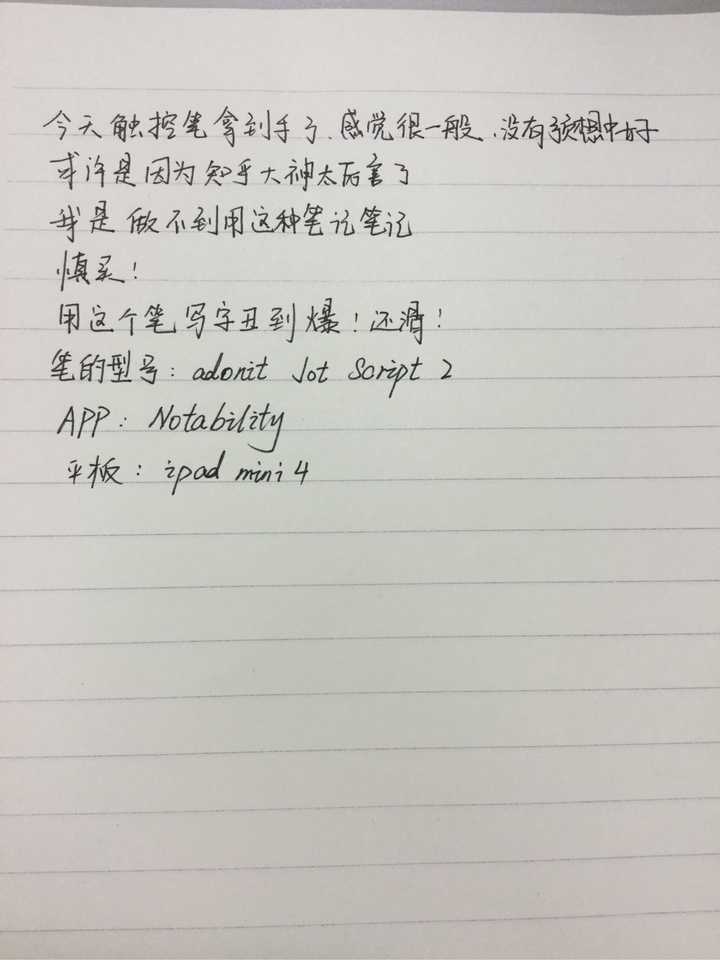 今天触控笔拿到手了.感觉很一般.没有预想中好
或许是因为知乎大神太厉害了
我是做不到用这种笔记笔记
慎买！
用这个笔写字丑到爆！还滑！
笔的型号：adonit Jot Script 2
APP：Notability
平板：ipad mini 4